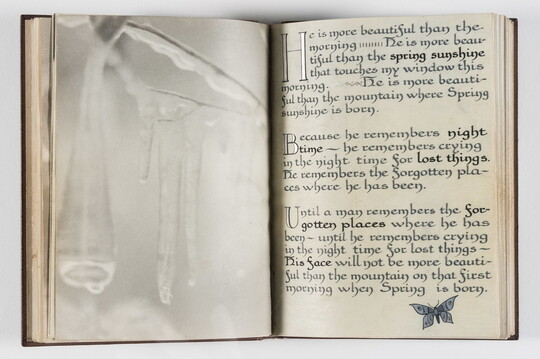 He is more beautiful than the
morning He is more beau-
tiful than the spring sunshine
that touches my window this
morning. He is more beauti-
ful than the mountain where Spring
sunshine is born.
Because he remembers night
time — he remembers crying
in the night time for lost things.
He remembers the forgotten pla-
ces where he has been.
Until a man remembers the for-
gotten places where he has
been ~ until he remembers crying
in the night time for lost things ~
His face will not be more beauti-
ful than the mountain on that first
morning when Spring is born.